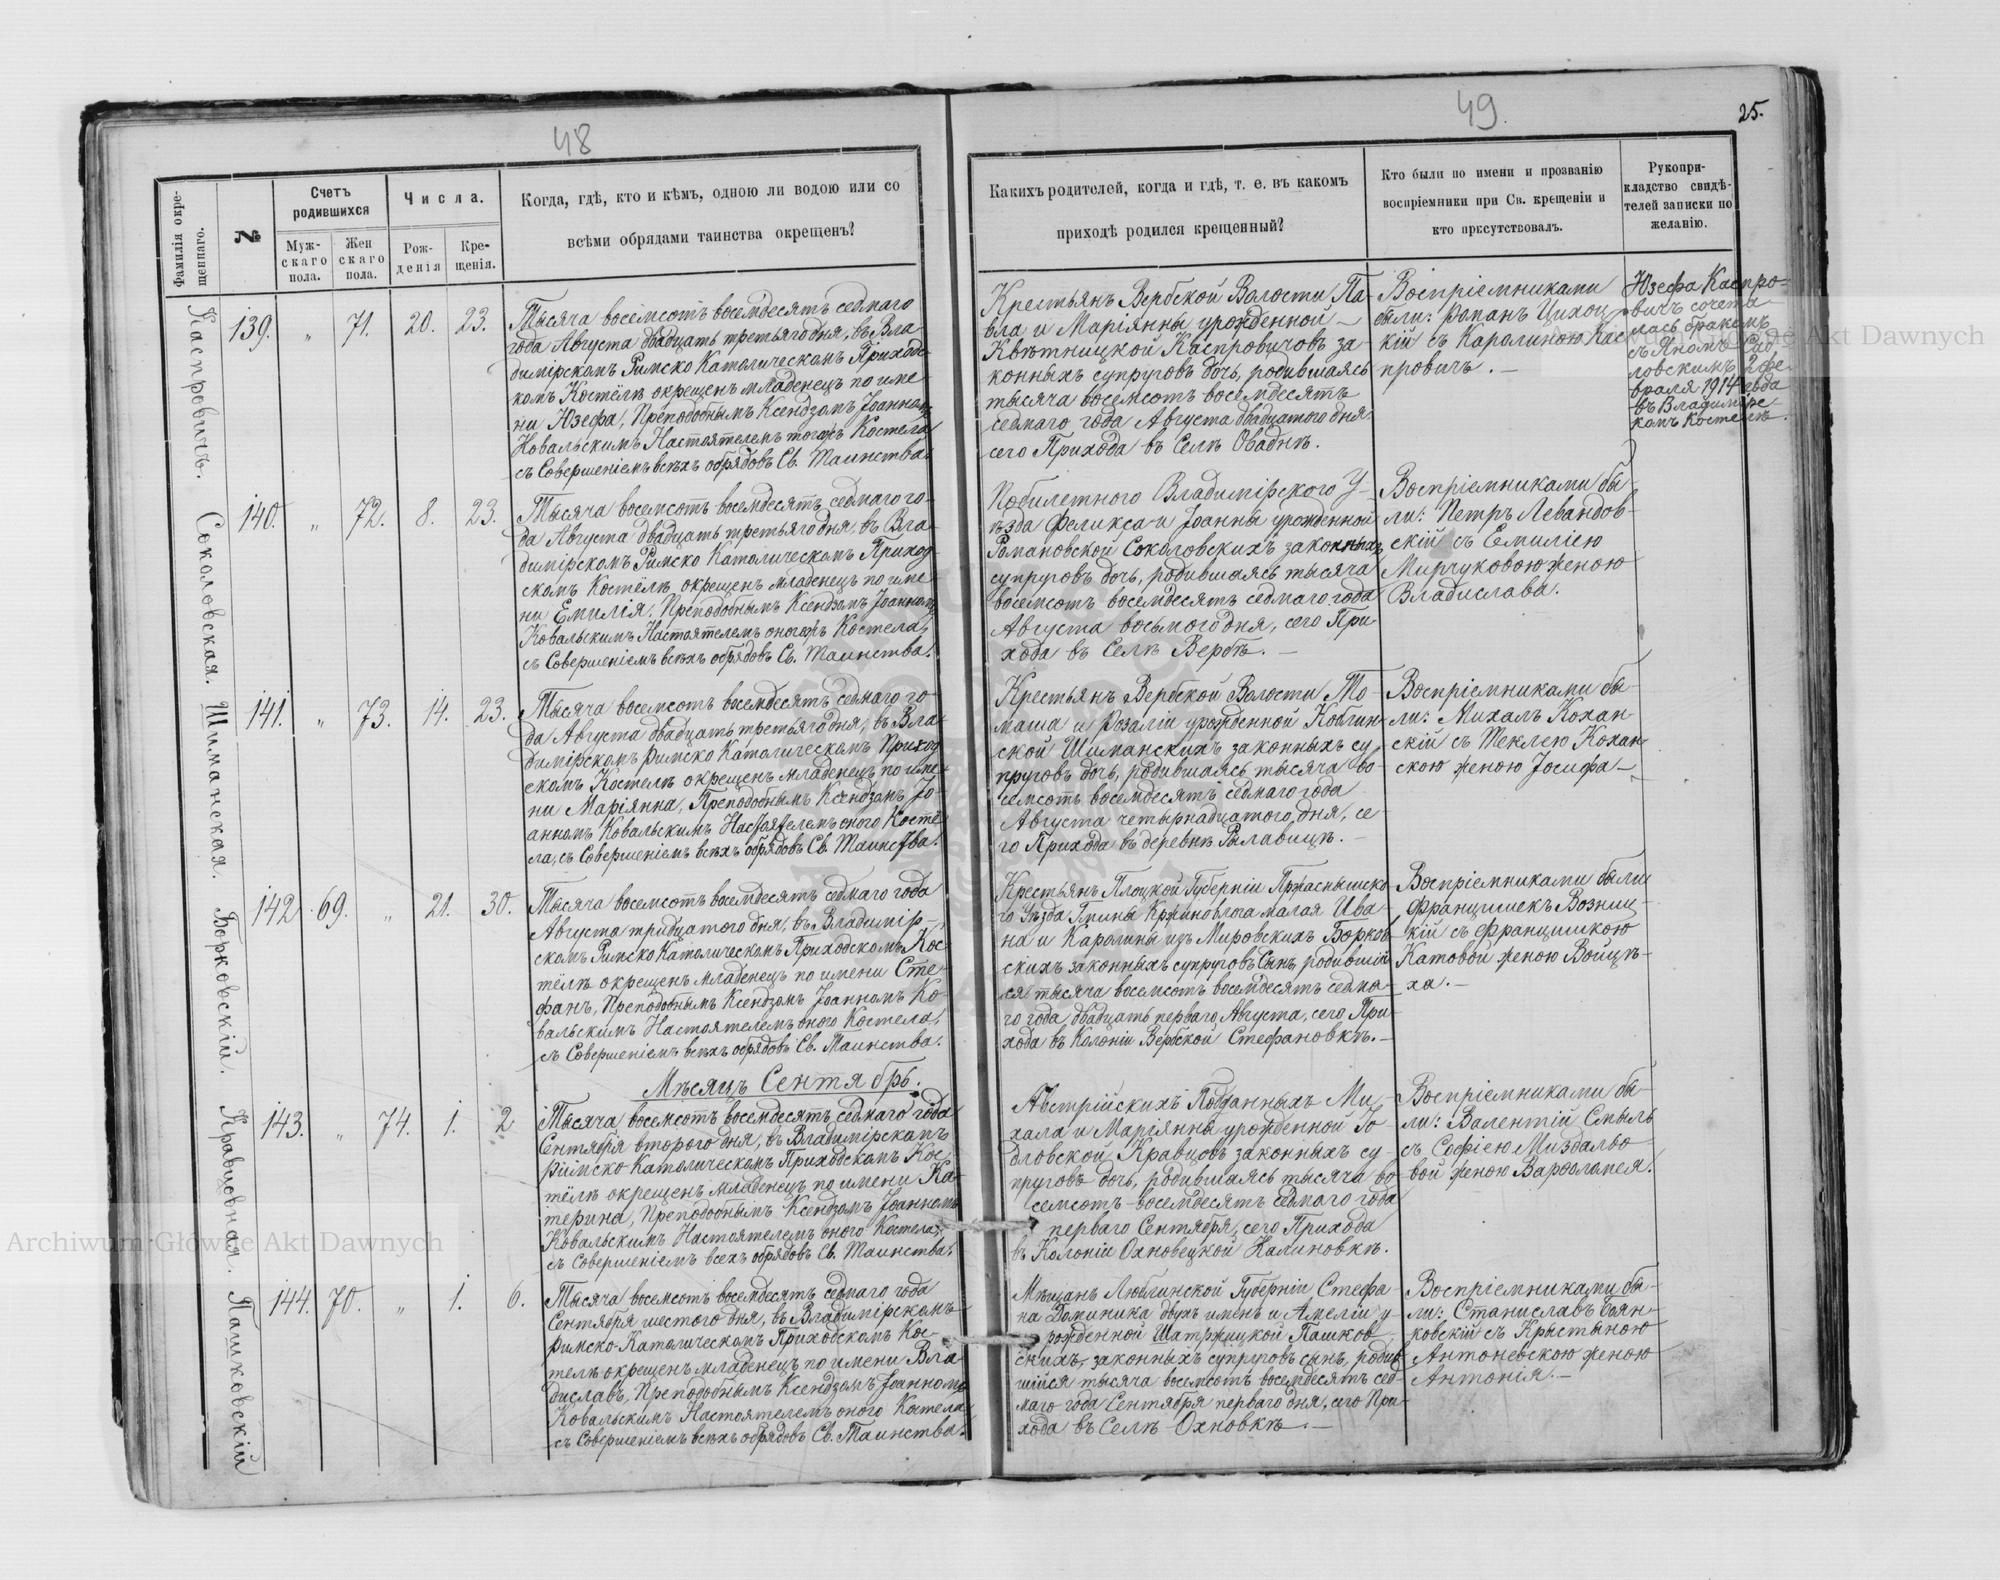 48
49
25.
Фамилія окре-
щеннаго.
№
Счетъ
родившихся
Муж-
скаго
пола.
Жен
скаго
пола.
Числа.
Рож-
денія
Кре-
щенія.
Когда, гдѣ, кто и кѣмъ, одною ли водою или со
всѣми обрядами таинства окрещенъ?
Какихъ родителей, когда и гдѣ, т. е. въ какомъ
приходѣ родился крещенный?
Кто были по имени и прозванію
воспріемники при Св. крещеніи и
кто присутствовалъ.
Рукопри-
кладство свидѣ-
телей записки по
желанію.
Каспровичъ.
139.
"
71.
20.
23.
Тысяча восемсотъ восемдесятъ седмаго
года Августа двадцать третьяго дня, въ Вла
димірскомъ Римско Католическомъ Приходс-
комъ Костёлѣ окрещенъ младенецъ по име-
ни Юзефа, Преподобнымъ Ксендзомъ Іоанномъ
Ковальскимъ Настоятелемъ тогожъ Костела
съ Совершеніемъ всѣхъ обрядовъ Св. Таинства.
Крестьянъ Вербской Волости Па-
вла и Маріянны урожденной —
Квѣтницкой Каспровичовъ за-
конныхъ супруговъ дочь, родившаяся
тысяча восемсотъ восемдесятъ
седмаго года Августа двадцатого дня
сего Прихода въ Селѣ Овадни.
Воспріемниками
были: Романъ Цихоц
кій съ Каролиною Кас
провичъ. —
Юзефа Каспро-
вичъ сочета
лась бракомъ
съ Яномъ Сад
ловскимъ 2 фе-
враля 1914 года
въ Владимірс-
комъ Костелѣ.
Соколовская.
140.
"
72.
8.
23.
Тысяча восемсотъ восемдесятъ седмаго го-
да Августа двадцать третьяго дня, въ Вла-
димірскомъ Римско Католическомъ Приход-
скомъ Костёлѣ окрещенъ младенецъ по име
ни Емилія, Преподобнымъ Ксендзомъ Іоанномъ
Ковальскимъ Настоятелемъ оногожъ Костела,
съ Совершеніемъ всѣхъ обрядовъ Св. Таинства.
Побилетного Владимірского У-
ѣзда Феликса и Іоанны урожденной
Романовской Соколовскихъ законныхъ
супруговъ дочь, родившаяся тысяча
восемсотъ восемдесятъ седмаго года
Августа восьмого дня, сего При
хода въ Селѣ Вербѣ. —
Воспріемниками бы-
ли: Петръ Левандов-
скій съ Емиліею
Мирчуковою женою
Владислава.
Шиманская.
141.
"
73.
14.
23.
Тысяча восемсотъ восемдесятъ седмаго го-
да Августа двадцать третьяго дня, въ Вла-
димірскомъ Римско Католическомъ Приход
скомъ Костелѣ окрещенъ младенецъ по име-
ни Маріянна, Преподобнымъ Ксендзомъ Іо-
анномъ Ковальскимъ Настоятелемъ оного Костё
ла, съ Совершеніемъ всѣхъ обрядовъ Св. Таинства.
Крестьянъ Вербской Волости То-
маша и Розаліи урожденной Коблин-
ской Шиманскихъ законныхъ су-
пруговъ дочь, родившаяся тысяча во-
семсотъ восемдесятъ седмаго года
Августа четырнадцатого дня, се-
го Прихода въ деревнѣ Рылавицѣ. —
Воспріемниками бы-
ли: Михалъ Кохан-
скій съ Теклею Кохан
скою женою Іосифа —
Борковскій.
142
69.
"
21.
30.
Тысяча восемсотъ восемдесятъ седмаго года
Августа тридцатого дня, въ Владимір-
скомъ Римско Католическомъ Приходскомъ Кос-
тёлѣ окрещенъ младенецъ по имени Сте-
фанъ, Преподобнымъ Ксендзомъ Іоанномъ Ко-
вальскимъ Настоятелемъ оного Костела,
съ Совершеніемъ всѣхъ обрядовъ Св. Таинства.
Крестьянъ Плоцкой Губерніи Пржаснышско-
го Уѣзда Гмины Крживовлога малая Ива-
на и Каролины изъ Мировскихъ Борков-
скихъ законныхъ супруговъ Сынъ, родившій-
ся тысяча восемсотъ восемдесятъ седма-
го года двадцать перваго Августа, сего При-
хода въ Колоніи Вербской Стефановкѣ. —
Воспріемниками были
Францишекъ Возниц-
кій съ Францишкою
Катовой женою Войцѣ-
ха. —
Мѣсяцъ Сентябрь.
Кравцовная.
143.
"
74.
1.
2
Тысяча восемсотъ восемдесятъ седмаго года
Сентября второго дня, въ Владимірскомъ
Римско Католическомъ Приходскомъ Кос-
тёлѣ окрещенъ младенецъ по имени Ка-
терина, Преподобнымъ Ксендзомъ Іоанномъ
Ковальскимъ Настоятелемъ оного Костела,
съ Совершеніемъ всѣхъ обрядовъ Св. Таинства.
Австрійскихъ Подданныхъ Ми-
хала и Маріянны урожденной Го-
дловской Кравцовъ законныхъ су-
пруговъ дочь, родившаяся тысяча во-
семсотъ восемдесятъ седмаго года
перваго Сентября, сего Прихода
въ Колоніи Охновецкой Калиновкѣ.
Воспріемниками бы-
ли: Валентій Смыль
съ Софіею Миздальо
вой женою Варфоломея.
Пашковскій
144.
70.
"
1.
6.
Тысяча восемсотъ восемдесятъ седмаго года
Сентября шестого дня, въ Владимірскомъ
Римско-Католическомъ Приходскомъ Кос-
телѣ окрещенъ младенецъ по имени Вла-
диславъ, Преподобнымъ Ксендзомъ Іоанномъ
Ковальскимъ Настоятелемъ оного Костела
съ Совершеніемъ всѣхъ обрядовъ Св. Таинства.
Мѣщанъ Люблинской Губерніи Стефа-
на Доминика двухъ именъ и Амеліи у-
рожденной Шатржицкой Пашков-
скихъ, законныхъ супруговъ сынъ, родив
шійся тысяча восемсотъ восемдесятъ сед-
маго года Сентября перваго дня, сего При-
хода въ Селѣ Охновкѣ. —
Воспріемниками бы-
ли: Станиславъ Боян-
ковскій съ Крыстыною
Антоневскою женою
Антонія. —
Archiwum Główne Akt Dawnych
Archiwum Główne Akt Dawnych